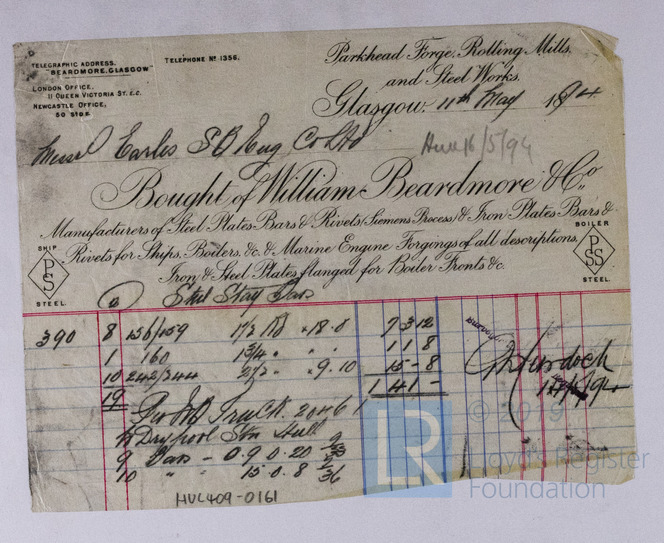 TELEGRAPHIC ADDRESS.
"BEARDMORE, GLASGOW"
TELEPHONE No 1356.
LONDON OFFICE,
11 QUEEN VICTORIA ST. E.C.
NEWCASTLE OFFICE,
50 SIDE.
Parkhead Forge, Rolling Mills,
and Steel Works.
Glasgow, 11th May 1894
Messrs Earles S B Eng Co Ltd
Hull 16/5/94
Bought of William Beardmore & Co.
Manufacturers of Steel Plates Bars & Rivets (Siemens Process) & Iron Plates Bars &
Rivets for Ships, Boilers, &c. & Marine Engine Forgings of all descriptions,
Iron & Steel Plates flanged for Boiler Fronts &c.
SHIP
PS
STEEL.
BOILER
PSS
STEEL.
Steel Stay Bars
390 8 156/159 18.0 7 3 12
1 160 " " 1 1 8
10 242/344 " 9.10 15 - 8
19 1 4 1 -
Truck. 2046
Drypool Stn Hull
9 Bars - 0.9.0.20
10 " " 15.0.8
Murdoch
HUL409-0161
© 2019
LR
Lloyd's Register
Foundation